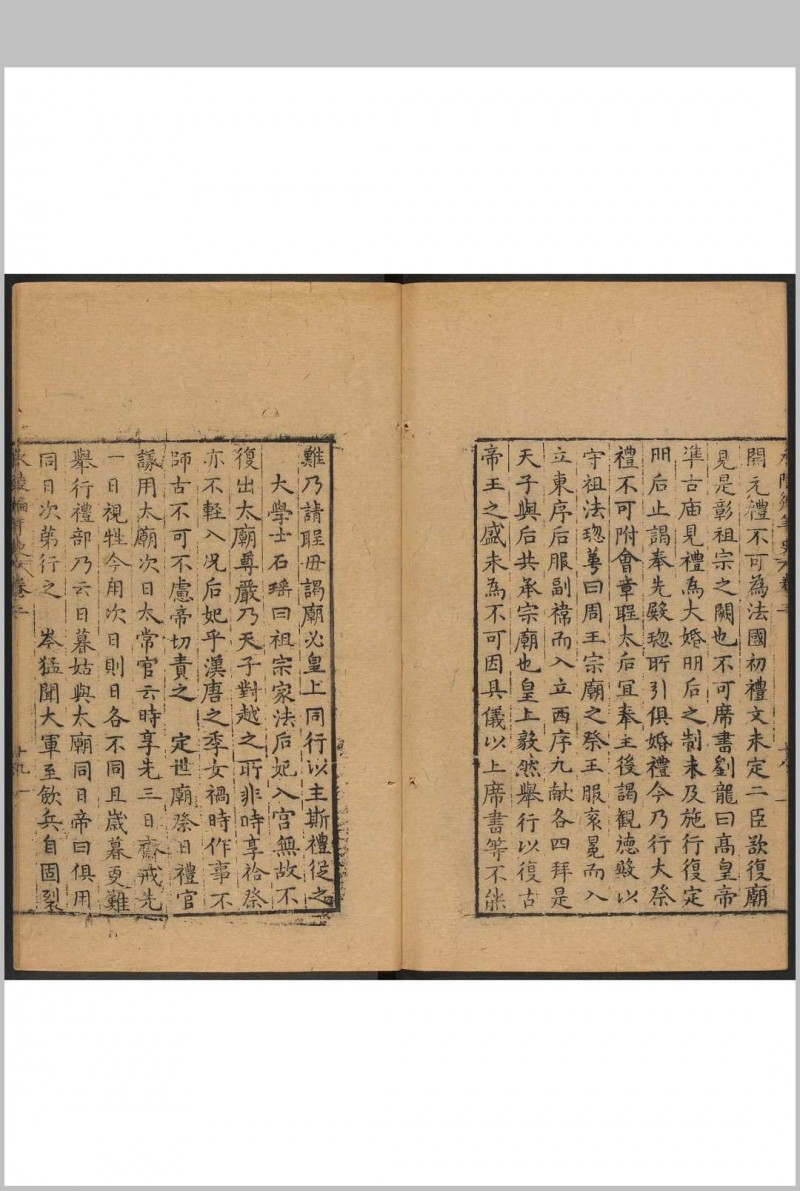 開元禮不可為法國初禮文未定二臣欲復廟
見是彰祖宗之闕也不可席書劉龍曰高皇帝
準古庙見禮為大婚明后之制未及施行復定
明后止謁奉先殿璁所引俱婚禮今乃行大祭
禮不可附會章聖太后宜奉主後謁觀德殿以
守祖法璁萼曰周王宗廟之祭王服衮冕而入
立東序后服副褘而入立西序九献各四拜是
天子與后共承宗廟也皇上毅然舉行以復古
帝王之盛未為不可因具儀以上席書等不能
難乃請聖母謁廟必皇上同行以主斯禮從之
大學士石瑶曰祖宗家法后妃入宫無故不
復出太廟尊嚴乃天子對越之所非時享祫祭
亦不輕入况后妃乎漢唐之季女禍時作事不
師古不可不慮帝切責之　定世廟祭日禮官
議用太廟次日太常官云時享先三日齋戒先
一日視牲今用次日則日各不同且歲暮更難
舉行禮部乃云日暮姑與太廟同日帝曰俱用
同日次第行之　岑猛聞大軍至飲兵自固裂